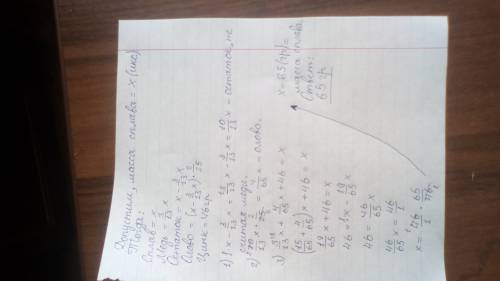 Допустим, масса сплава = x (икс)
Тогда:
Сплав = x
Медь = 3/13 x
Остаток = x - 3/13 x
Олово = (x - 3/13 x) · 2/25
Цинк = 46 гр
1) 1x - 3/13 x = 13/13 x - 3/13 x = 10/13 x - остаток, не
считая меди.
2) 10/13 x · 2/25 = 4/65 x - олово.
3) 3/13 x + 4/65 x + 46 = x
(15/65 + 4/65) x + 46 = x
19/65 x + 46 = x
46 = 1x - 19/65 x
46 = 46/65 x
46/65 x = 46/1
x = 46/1 · 65/46
x = 65 (гр) =
масса сплава
Ответ:
65 гр